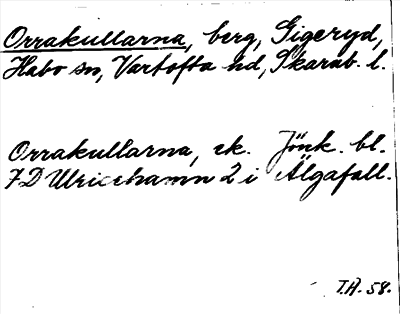 Orrakullarna, berg, Gigeryd,
Habo sn, Vartofta hd, Skarab. l.
Orrakullarna, ek. Jönk. bl.
7D Ulricehamn 2 i Älgafall.
T.A. 58.